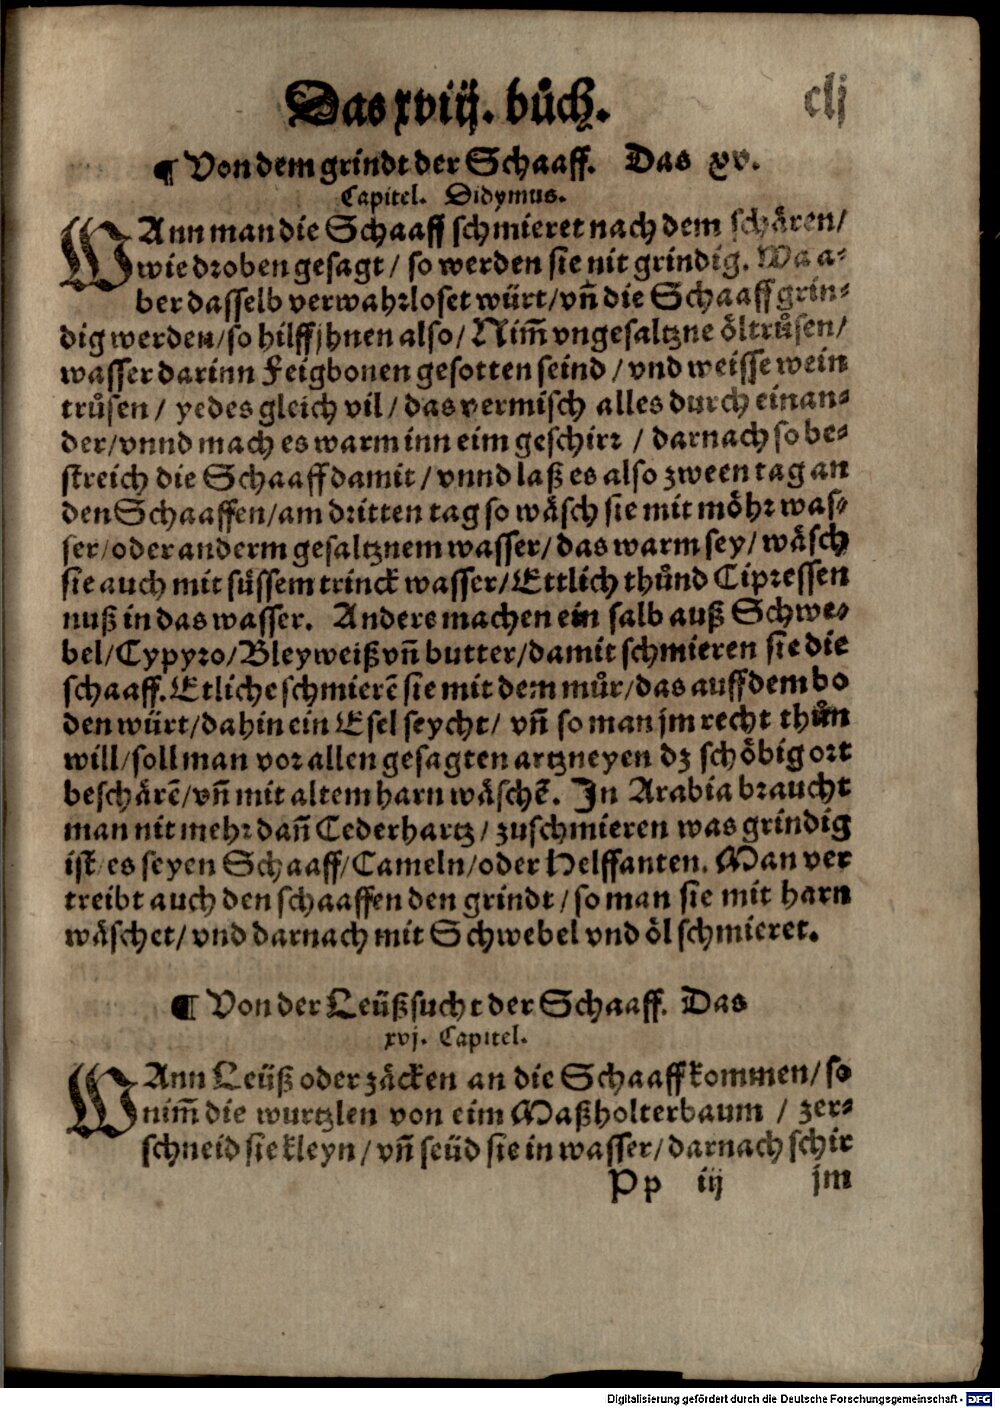 Das xviij. bůch. clj
¶ Von dem grindt der Schaaff. Das xv.
Capitel. Didymus.
WAnn man die Schaaff schmieret nach dem schären/
wie droben gesagt/ so werden sie nit grindig. Wa a⸗
ber dasselb verwahrloset würt/ vñ die Schaaff grin⸗
dig werden/ so hilff jhnen also/ Nim̃ vngesaltzne öltrůsen/
wasser darinn Feigbonen gesotten seind/ vnd weisse wein
trůsen/ yedes gleich vil/ das vermisch alles durch einan⸗
der/ vnnd mach es warm inn eim geschirr/ darnach so be⸗
streich die Schaaff damit/ vnnd laß es also zween tag an
den Schaaffen/ am dritten tag so wäsch sie mit möhr was⸗
ser/ oder anderm gesaltznem wasser/ das warm sey/ wäsch
sie auch mit süssem trinck wasser/ Ettlich thůnd Cipressen
nuß in das wasser. Andere machen ein salb auß Schwe⸗
bel/ Cypyro/ Bleyweiß vñ butter/ damit schmieren sie die
schaaff. Etliche schmierẽ sie mit dem můr/ das auff dem bo
den würt/ dahin ein Esel seycht/ vñ so man jm recht thůn
will/ soll man vor allen gesagten artzneyen dz schöbig ort
beschärẽ/ vñ mit altem harn wäschẽ. In Arabia braucht
man nit mehr dañ Cederhartz/ zuschmieren was grindig
ist/ es seyen Schaaff/ Cameln/ oder Helffanten. Man ver
treibt auch den schaaffen den grindt/ so man sie mit harn
wäschet/ vnd darnach mit Schwebel vnd öl schmieret.
¶ Von der Leüßsucht der Schaaff. Das
xvj. Capitel.
WAnn Leüß oder zäcken an die Schaaff kommen/ so
nim̃ die wurtzlen von eim Maßholterbaum / zer⸗
schneid sie kleyn/ vñ seüd sie in wasser/ darnach schir
Pp iij jm
Digitalisierung gefördert durch die Deutsche Forschungsgemeinschaft - DFG